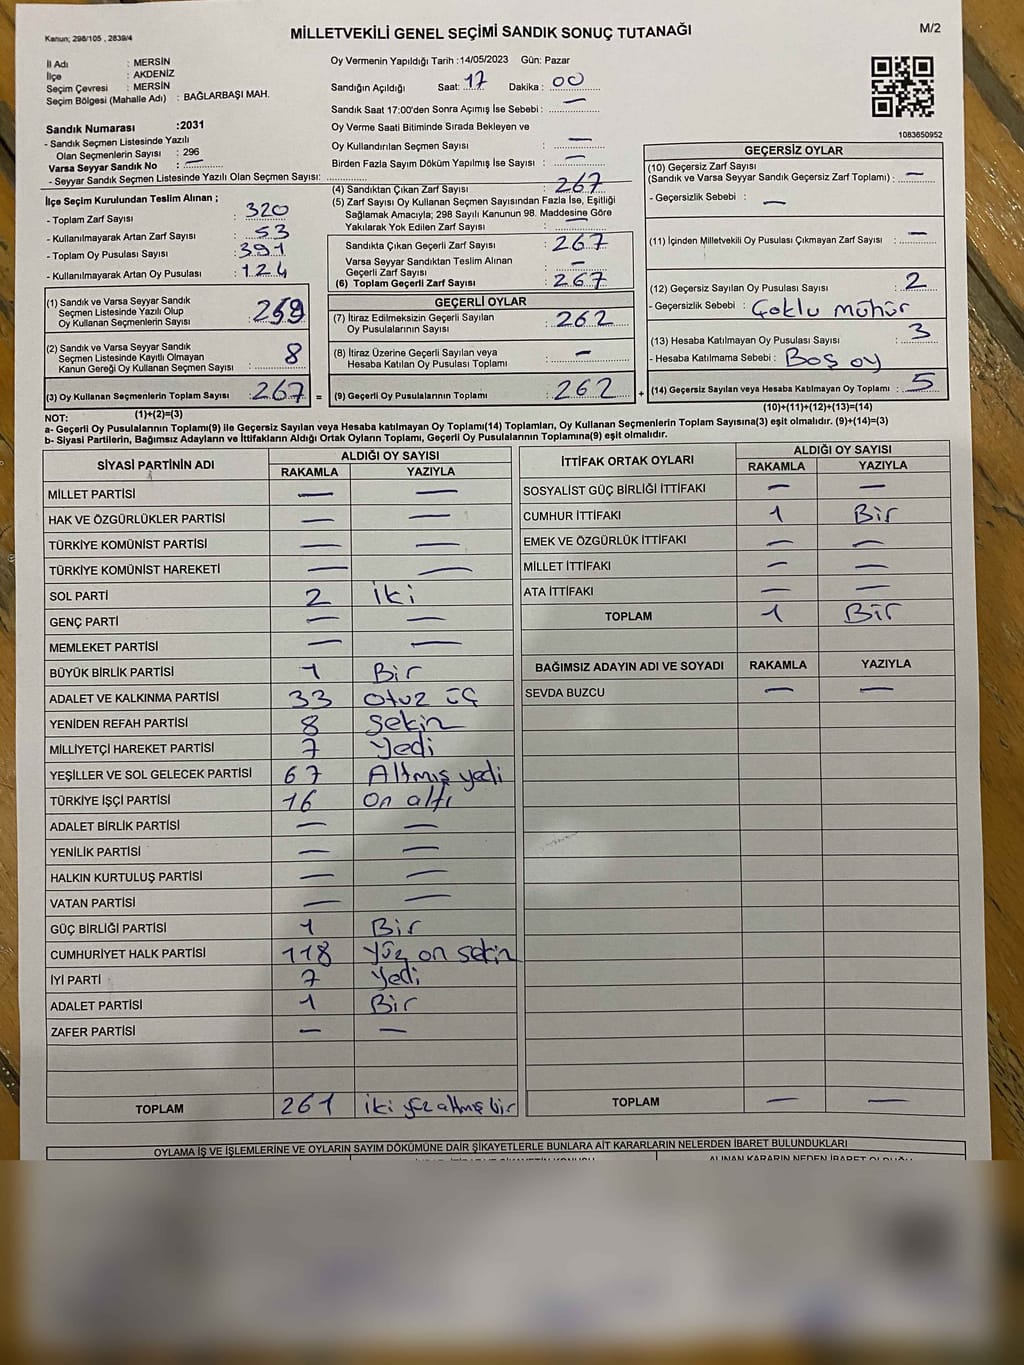 Kanun; 298/105 , 2839/4
MİLLETVEKİLİ GENEL SEÇİMİ SANDIK SONUÇ TUTANAĞI
M/2
İl Adı : MERSİN
İlçe : AKDENİZ
Seçim Çevresi : MERSİN
Seçim Bölgesi (Mahalle Adı) : BAĞLARBAŞI MAH.
Sandık Numarası :2031
- Sandık Seçmen Listesinde Yazılı
Olan Seçmenlerin Sayısı : 296
Varsa Seyyar Sandık No : —
- Seyyar Sandık Seçmen Listesinde Yazılı Olan Seçmen Sayısı:
Oy Vermenin Yapıldığı Tarih :14/05/2023 Gün: Pazar
Sandığın Açıldığı Saat: 17 Dakika : 00
Sandık Saat 17:00'den Sonra Açımış İse Sebebi : —
Oy Verme Saati Bitiminde Sırada Bekleyen ve
Oy Kullandırılan Seçmen Sayısı : —
Birden Fazla Sayım Döküm Yapılmış İse Sayısı : —
1083650952
İlçe Seçim Kurulundan Teslim Alınan ;
- Toplam Zarf Sayısı : 320
- Kullanılmayarak Artan Zarf Sayısı : 53
- Toplam Oy Pusulası Sayısı : 391
- Kullanılmayarak Artan Oy Pusulası : 124
(1) Sandık ve Varsa Seyyar Sandık
Seçmen Listesinde Yazılı Olup
Oy Kullanan Seçmenlerin Sayısı : 259
(2) Sandık ve Varsa Seyyar Sandık
Seçmen Listesinde Kayıtlı Olmayan
Kanun Gereği Oy Kullanan Seçmen Sayısı : 8
(3) Oy Kullanan Seçmenlerin Toplam Sayısı : 267 =
(4) Sandıktan Çıkan Zarf Sayısı : 267
(5) Zarf Sayısı Oy Kullanan Seçmen Sayısından Fazla İse, Eşitliği
Sağlamak Amacıyla; 298 Sayılı Kanunun 98. Maddesine Göre
Yakılarak Yok Edilen Zarf Sayısı : —
Sandıkta Çıkan Geçerli Zarf Sayısı : 267
Varsa Seyyar Sandıktan Teslim Alınan
Geçerli Zarf Sayısı : —
(6) Toplam Geçerli Zarf Sayısı : 267
GEÇERLİ OYLAR
(7) İtiraz Edilmeksizin Geçerli Sayılan
Oy Pusulalarının Sayısı : 262
(8) İtiraz Üzerine Geçerli Sayılan veya
Hesaba Katılan Oy Pusulası Toplamı : —
(9) Geçerli Oy Pusulalarının Toplamı : 262 +
GEÇERSİZ OYLAR
(10) Geçersiz Zarf Sayısı
(Sandık ve Varsa Seyyar Sandık Geçersiz Zarf Toplamı) : —
- Geçersizlik Sebebi : —
(11) İçinden Milletvekili Oy Pusulası Çıkmayan Zarf Sayısı : —
(12) Geçersiz Sayılan Oy Pusulası Sayısı : 2
- Geçersizlik Sebebi : Çoklu mühür
(13) Hesaba Katılmayan Oy Pusulası Sayısı : 3
- Hesaba Katılmama Sebebi : Boş oy
(14) Geçersiz Sayılan veya Hesaba Katılmayan Oy Toplamı : 5
NOT: (1)+(2)=(3)
(10)+(11)+(12)+(13)=(14)
a- Geçerli Oy Pusulalarının Toplamı(9) ile Geçersiz Sayılan veya Hesaba katılmayan Oy Toplamı(14) Toplamları, Oy Kullanan Seçmenlerin Toplam Sayısına(3) eşit olmalıdır. (9)+(14)=(3)
b- Siyasi Partilerin, Bağımsız Adayların ve İttifakların Aldığı Ortak Oyların Toplamı, Geçerli Oy Pusulalarının Toplamına(9) eşit olmalıdır.
SİYASİ PARTİNİN ADI ALDIĞI OY SAYISI
RAKAMLA YAZIYLA
MİLLET PARTİSİ — —
HAK VE ÖZGÜRLÜKLER PARTİSİ — —
TÜRKİYE KOMÜNİST PARTİSİ — —
TÜRKİYE KOMÜNİST HAREKETİ — —
SOL PARTİ 2 iki
GENÇ PARTİ — —
MEMLEKET PARTİSİ — —
BÜYÜK BİRLİK PARTİSİ 1 Bir
ADALET VE KALKINMA PARTİSİ 33 otuz üç
YENİDEN REFAH PARTİSİ 8 sekiz
MİLLİYETÇİ HAREKET PARTİSİ 7 yedi
YEŞİLLER VE SOL GELECEK PARTİSİ 67 Altmış yedi
TÜRKİYE İŞÇİ PARTİSİ 16 on altı
ADALET BİRLİK PARTİSİ — —
YENİLİK PARTİSİ — —
HALKIN KURTULUŞ PARTİSİ — —
VATAN PARTİSİ — —
GÜÇ BİRLİĞİ PARTİSİ 1 Bir
CUMHURİYET HALK PARTİSİ 118 yüz on sekiz
İYİ PARTİ 7 yedi
ADALET PARTİSİ 1 Bir
ZAFER PARTİSİ — —
TOPLAM 261 iki yüz altmış bir
İTTİFAK ORTAK OYLARI ALDIĞI OY SAYISI
RAKAMLA YAZIYLA
SOSYALİST GÜÇ BİRLİĞİ İTTİFAKI — —
CUMHUR İTTİFAKI 1 Bir
EMEK VE ÖZGÜRLÜK İTTİFAKI — —
MİLLET İTTİFAKI — —
ATA İTTİFAKI — —
TOPLAM 1 Bir
BAĞIMSIZ ADAYIN ADI VE SOYADI RAKAMLA YAZIYLA
SEVDA BUZCU — —
TOPLAM — —
OYLAMA İŞ VE İŞLEMLERİNE VE OYLARIN SAYIM DÖKÜMÜNE DAİR ŞİKAYETLERLE BUNLARA AİT KARARLARIN NELERDEN İBARET BULUNDUKLARI
ALINAN KARARIN NEDEN İBARET OLDUĞU